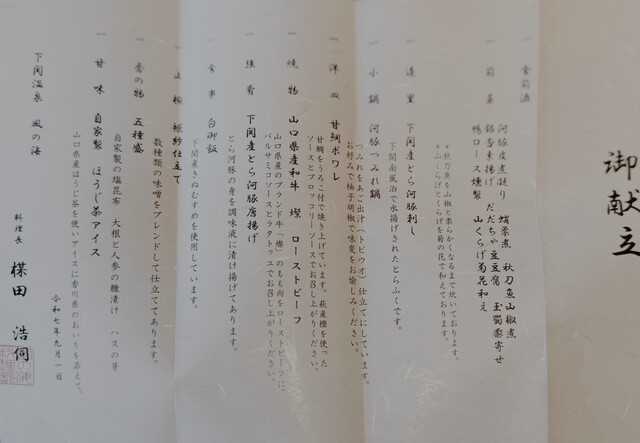 御献立
一 食前酒
一 前菜 河豚皮煮凝り 蛸柔煮 秋刀魚山椒煮
銀杏素揚げ だだちゃ豆豆腐 玉蜀黍寄せ
鴨ロース燻製 山くらげ菊花和え
*秋刀魚を山椒と柔らかくなるまで炊いております。
*山くらげとくらげを菊の花で和えております。
一 造里 下関産とら河豚刺し
下関南風泊で水揚げされたとらふくです。
一 小鍋 河豚つみれ鍋
つみれをあご出汁(トビウオ)仕立てにしています。
お好みで柚子胡椒で味変をお愉しみください。
一 洋皿 甘鯛ポワレ
甘鯛をうろこ付で焼き上げています。萩産橙を使った
ソースとブロッコリーソースでお召し上がりください。
一 焼物 山口県産和牛 燦 ローストビーフ
山口県産のブランド牛「燦」のもも肉をローストビーフに。
バルサミコソースとラタトゥユでお召し上がりください。
一 進肴 下関産とら河豚唐揚げ
とら河豚の身を調味液に漬け揚げてあります。
一 食事 白御飯
下関産きぬむすめを使用しています。
一 止椀 袱紗仕立て
数種類の味噌をブレンドして仕立ててあります。
一 香の物 五種盛
自家製の塩昆布 大根と人参の糠漬け ハスの芽
一 甘味 自家製 ほうじ茶アイス
山口県産ほうじ茶を使いアイスに香川県のおいりを添えて。
令和七年九月一日
下関温泉 風の海
料理長 楳田 浩伺